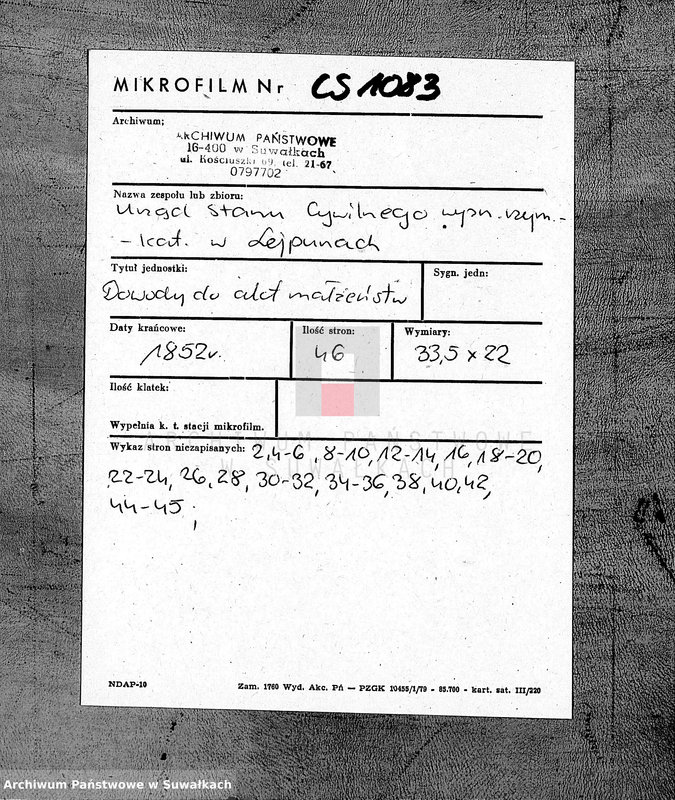 MIKROFILM Nr CS 1083
Archiwum;
ARCHIWUM PAŃSTWOWE
16-400 w Suwałkach
ul. Kościuszki 69, tel. 21-67
0797702
Nazwa zespołu lub zbioru:
Urząd Stanu Cywilnego wyzn. rzym.-
- kat. w Lejpunach
Tytuł jednostki:
Sygn. jedn:
Dowody do akt małżeństw
Daty krańcowe:
Ilość stron:
Wymiary:
1852r.
46
33,5 x 22
Ilość klatek:
Wypełnia k. t. stacji mikrofilm.
ARCHIWUM PAŃSTWOWE
W SUWAŁKACH
Wykaz stron niezapisanych: 2,4-6, 8-10, 12-14, 16, 18-20,
22-24, 26, 28, 30-32, 34-36, 38, 40, 42,
44-45;
NDAP-10
Zam. 1760 Wyd. Akc. Pń — PZGK 10455/I/79 - 85.700 - kart. sat. III/220
Archiwum Państwowe w Suwałkach